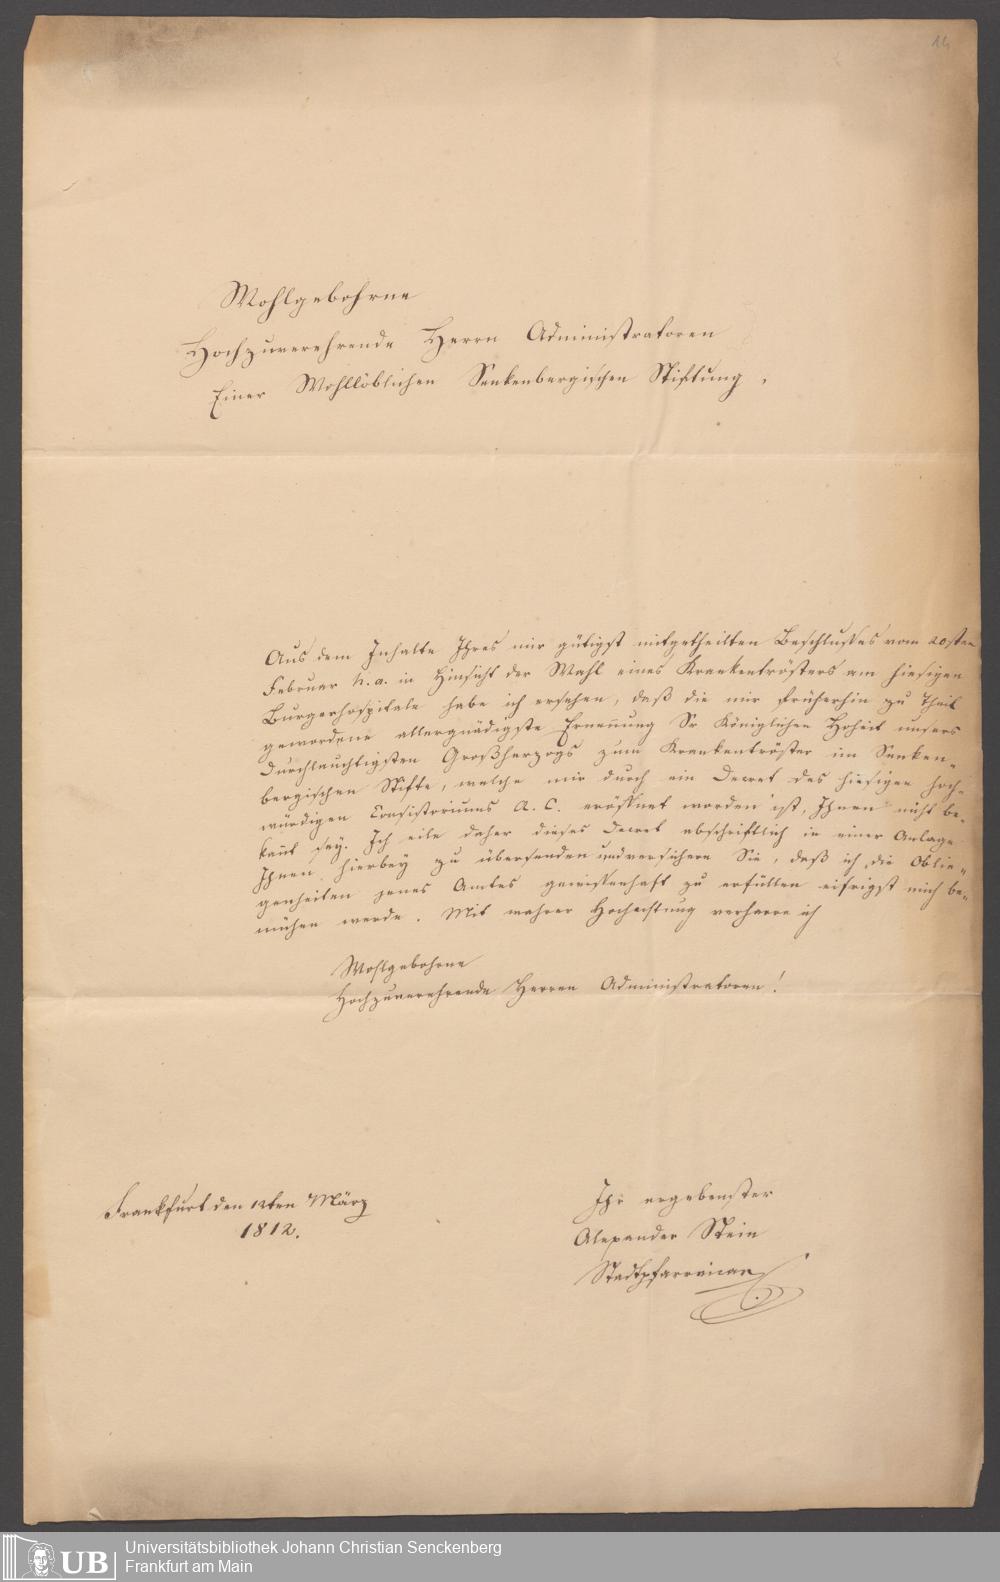 14
Wohlgebohrne
Hochzuverehrende Herrn Administratoren
Einer Wohllöblichen Senkenbergischen Stiftung,
Aus dem Inhalte Ihres mir gütigst mitgetheilten Beschlusses vom 20sten
Februar h. a. in Hinsicht der Wahl eines Krankentrösters am hiesigen
Burgerhospitale habe ich ersehen, daß die mir früherhin zu Theil
gewordene allergnädigste Ernennung Sr Königlichen Hoheit unsers
Durchlauchtigsten Großherzogs zum Krankentröster im Senken-
bergischen Stifte, welche mir durch ein Decret des hiesigen hoch-
würdigen Consistoriums A. C. eröffnet worden ist, Ihnen nicht be-
kannt sey. Ich eile daher dieses Decret abschriftlich in einer Anlage
Ihnen hierbey zu übersenden und versichere Sie, daß ich die Oblie-
genheiten jenes Amtes gewissenhaft zu erfüllen eifrigst mich be-
mühen werde. Mit wahrer Hochachtung verharre ich
Wohlgebohrne
Hochzuverehrende Herren Administratoren!
Frankfurt den 12ten März
1812.
Ihr ergebenster
Alexander Stein
Stadtpfarrvicar
UB
Universitätsbibliothek Johann Christian Senckenberg
Frankfurt am Main